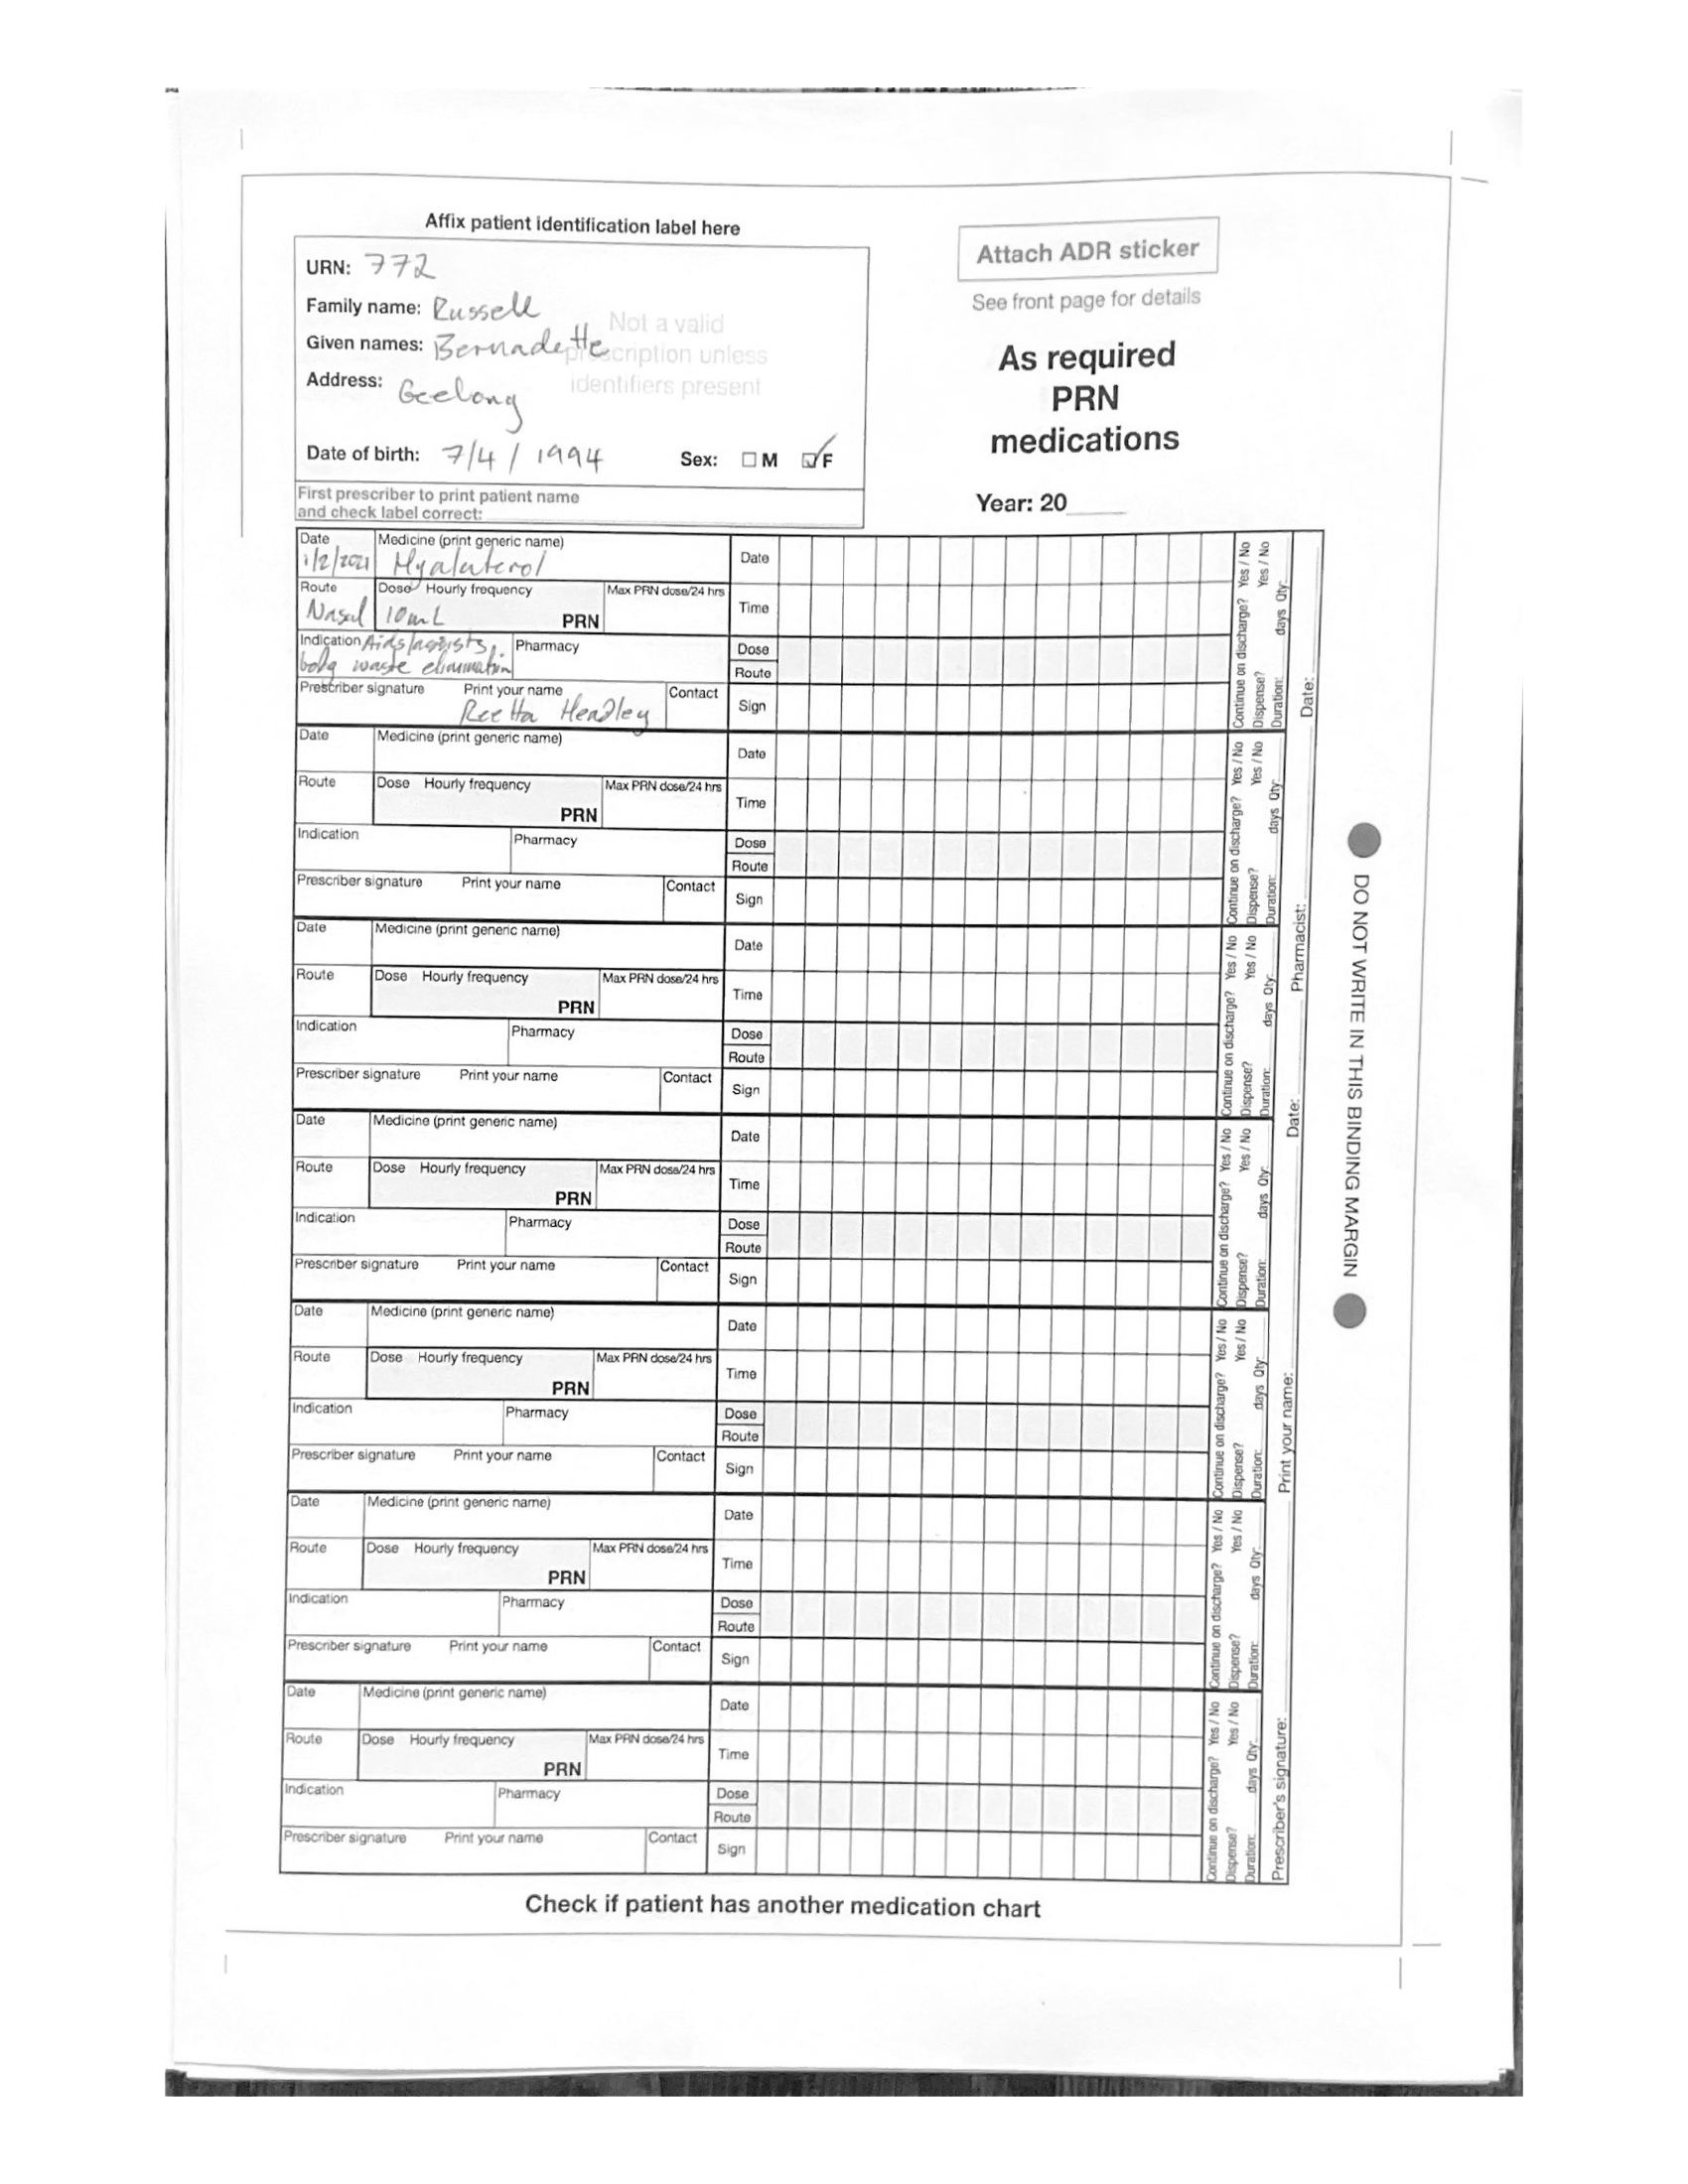 Affix patient identification label here
URN: 772
Family name: Russell
Given names: Bernadette
Address: Geelong
Not a valid
prescription unless
identifiers present
Date of birth: 7/4/1994 Sex: M F
First prescriber to print patient name
and check label correct:
Attach ADR sticker
See front page for details
As required
PRN
medications
Year: 20
Date Medicine (print generic name) Date
1/2/2021
Route Dose Hourly frequency Max PRN dose/24 hrs Time
Nasal 10mL PRN
Indication Aids/assists Pharmacy Dose
body waste elimination Route
Prescriber signature Print your name Contact Sign
Reetta Headley
Continue on discharge? Yes / No
Dispense? Yes / No
Duration: days Qty:
Date Medicine (print generic name) Date
Route Dose Hourly frequency Max PRN dose/24 hrs Time
PRN
Indication Pharmacy Dose
Route
Prescriber signature Print your name Contact Sign
Continue on discharge? Yes / No
Dispense? Yes / No
Duration: days Qty:
Date Medicine (print generic name) Date
Route Dose Hourly frequency Max PRN dose/24 hrs Time
PRN
Indication Pharmacy Dose
Route
Prescriber signature Print your name Contact Sign
Continue on discharge? Yes / No
Dispense? Yes / No
Duration: days Qty:
Date Medicine (print generic name) Date
Route Dose Hourly frequency Max PRN dose/24 hrs Time
PRN
Indication Pharmacy Dose
Route
Prescriber signature Print your name Contact Sign
Continue on discharge? Yes / No
Dispense? Yes / No
Duration: days Qty:
Date Medicine (print generic name) Date
Route Dose Hourly frequency Max PRN dose/24 hrs Time
PRN
Indication Pharmacy Dose
Route
Prescriber signature Print your name Contact Sign
Continue on discharge? Yes / No
Dispense? Yes / No
Duration: days Qty:
Date Medicine (print generic name) Date
Route Dose Hourly frequency Max PRN dose/24 hrs Time
PRN
Indication Pharmacy Dose
Route
Prescriber signature Print your name Contact Sign
Continue on discharge? Yes / No
Dispense? Yes / No
Duration: days Qty:
Date Medicine (print generic name) Date
Route Dose Hourly frequency Max PRN dose/24 hrs Time
PRN
Indication Pharmacy Dose
Route
Prescriber signature Print your name Contact Sign
Continue on discharge? Yes / No
Dispense? Yes / No
Duration: days Qty:
Prescriber's signature: Print your name: Date: Pharmacist: Date:
DO NOT WRITE IN THIS BINDING MARGIN
Check if patient has another medication chart